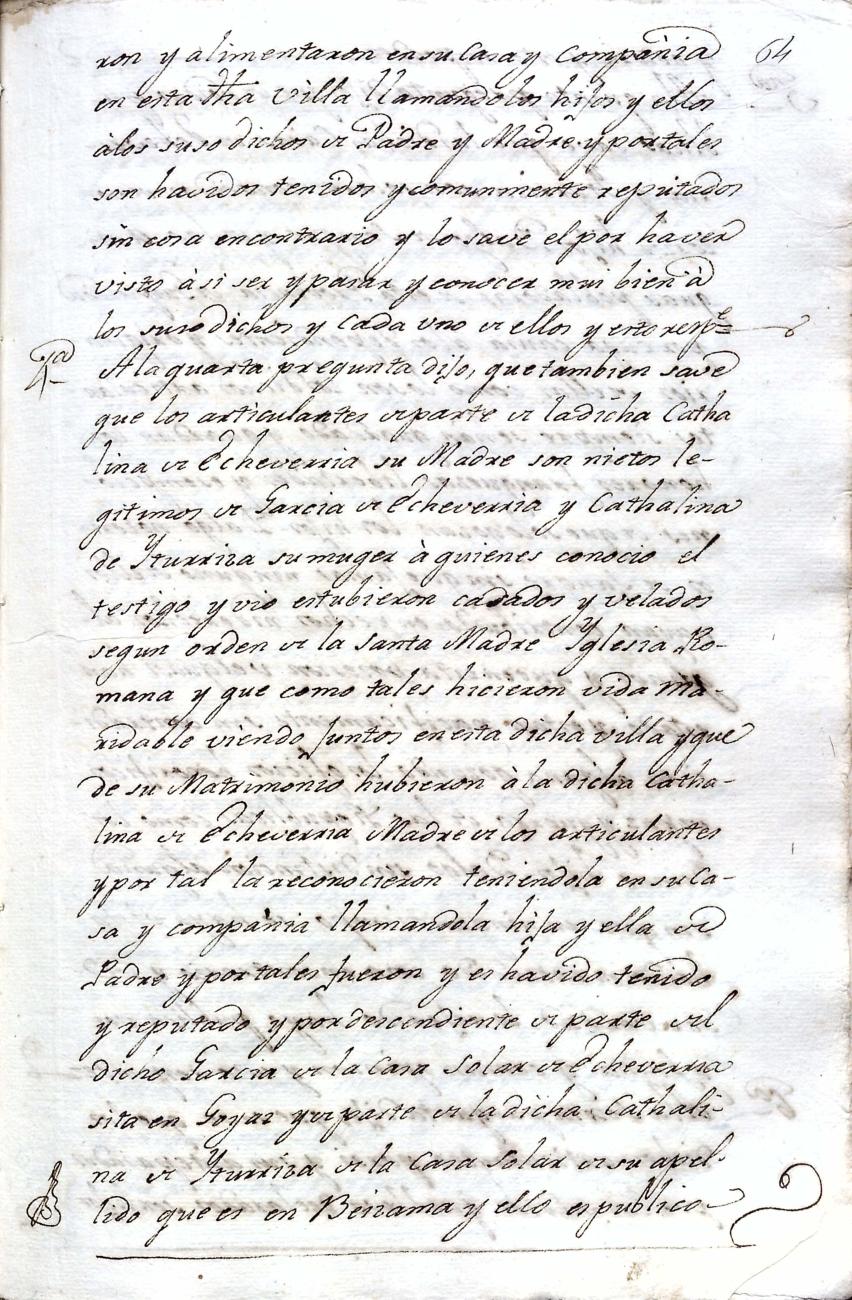 64
ron y alimentaron en su Casa y Compania
en esta dha Villa llamandolos hijos y ellos
àlos suso dichos de Padre y Madre y por tales
son havidos tenidos y comunmente reputados
sin cosa encontrario y lo save el por haver
visto àsi ser y pasar y conocer mui bien à
los suso dichos y Cada vno de ellos y esto respe=
4a
A la quarta pregunta dijo, que tambien save
que los articulantes de parte de la dicha Catha
lina de Echeverria su Madre son nietos le-
gitimos de Garcia de Echeverria y Cathalina
de Yturriza su muger à quienes conocio el
testigo y vio estubieron casados y velados
segun orden de la Santa Madre Yglesia Ro-
mana y que como tales hicieron vida ma-
ridable viendo juntos en esta dicha villa y que
de su Matrimonio hubieron à la dicha Catha-
lina de Echeverria Madre de los articulantes
y por tal la reconocieron teniendola en su Ca-
sa y compania llamandola hija y ella de
Padre y por tales fueron y es havido tenido
y reputado y por descendiente de parte del
dicho Garcia de la Casa Solar de Echeverria
sita en Goyaz y de parte de la dicha Cathali-
na de Yturriza de la Casa Solar de su apel-
lido que es en Beizama y ello es publico